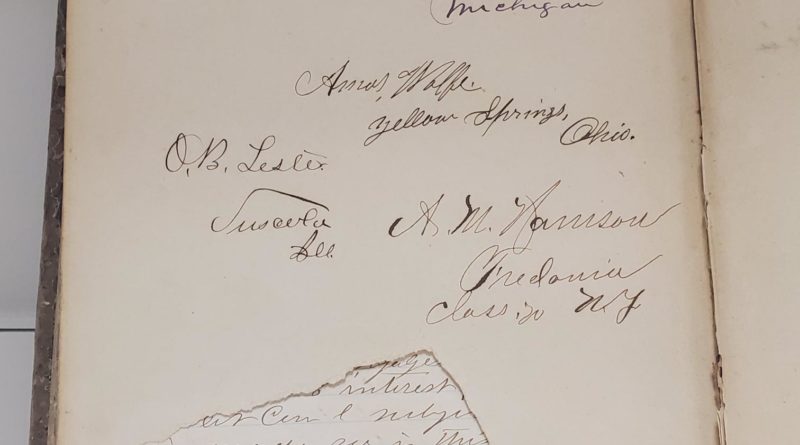 Michigan
Amos Wolfe
Yellow Springs,
Ohio.
O. B. Lester
Tuscola
Ill.
A. M. Harrison
Fredonia
Class N. Y.
interest
subje